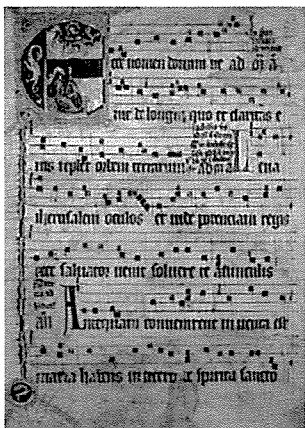 Ecce nomen domini ve
nit de longin quo et claritas e
ius replet orbem terrarum Leua
iherusalem oculos et uide potenciam regis
ecce saluator uenit soluere te a uinculis
Antequam conuenirent inuenta est
maria habens in utero de spiritu sancto